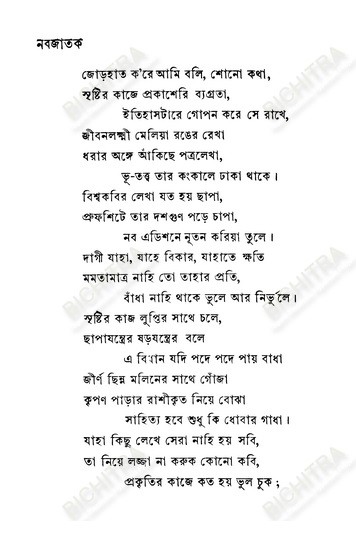 নবজাতক
জোড়হাত ক'রে আমি বলি, শোনো কথা,
সৃষ্টির কাজে প্রকাশেরি ব্যগ্রতা,
ইতিহাসটারে গোপন করে সে রাখে,
জীবনলক্ষ্মী মেলিয়া রঙের রেখা
ধরার অঙ্গে আঁকিছে পত্রলেখা,
ভূ-তত্ত্ব তার কংকালে ঢাকা থাকে।
বিশ্বকবির লেখা যত হয় ছাপা,
প্রুফশিটে তার দশগুণ পড়ে চাপা,
নব এডিশনে নূতন করিয়া তুলে।
দাগী যাহা, যাহে বিকার, যাহাতে ক্ষতি
মমতামাত্র নাহি তো তাহার প্রতি,
বাঁধা নাহি থাকে ভুলে আর নির্ভুলে।
সৃষ্টির কাজ লুপ্তির সাথে চলে,
ছাপাযন্ত্রের ষড়যন্ত্রের বলে
এ বিধান যদি পদে পদে পায় বাধা
জীর্ণ ছিন্ন মলিনের সাথে গোঁজা
কৃপণ পাড়ার রাশীকৃত নিয়ে বোঝা
সাহিত্য হবে শুধু কি ধোবার গাধা।
যাহা কিছু লেখে সেরা নাহি হয় সবি,
তা নিয়ে লজ্জা না করুক কোনো কবি,
প্রকৃতির কাজে কত হয় ভুল চুক;
BICHITRA
BICHITRA
BICHITRA
BICHITRA
BICHITRA
BICHITRA